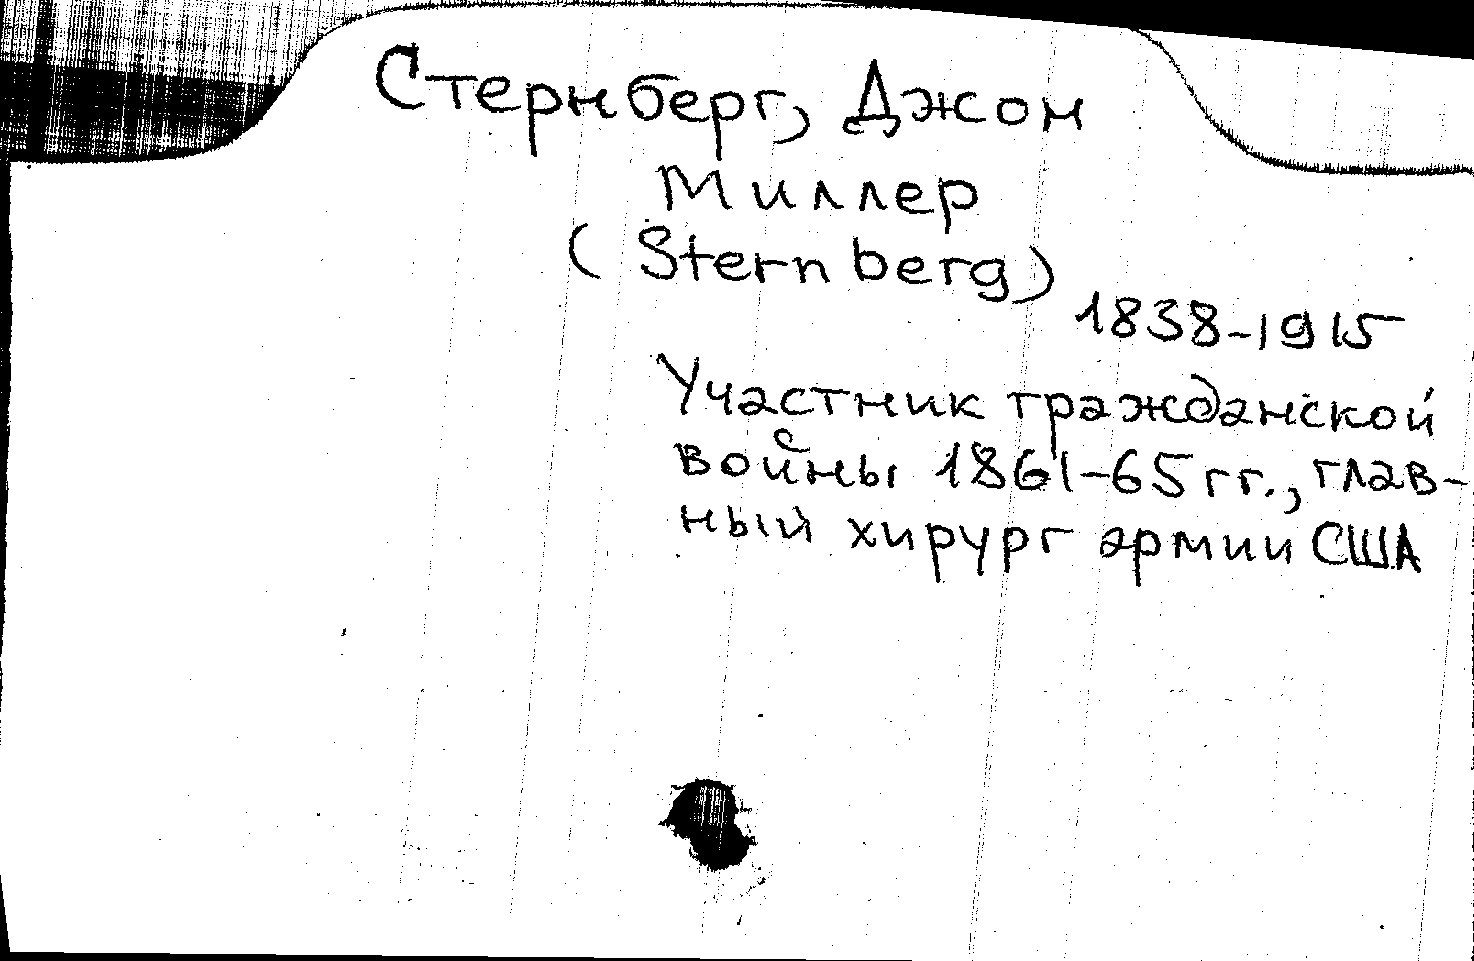 Стернберг, Джон
Миллер
(Sternberg)
1838-1915
Участник гражданской
войны 1861-65 гг., глав-
ный хирург армии США